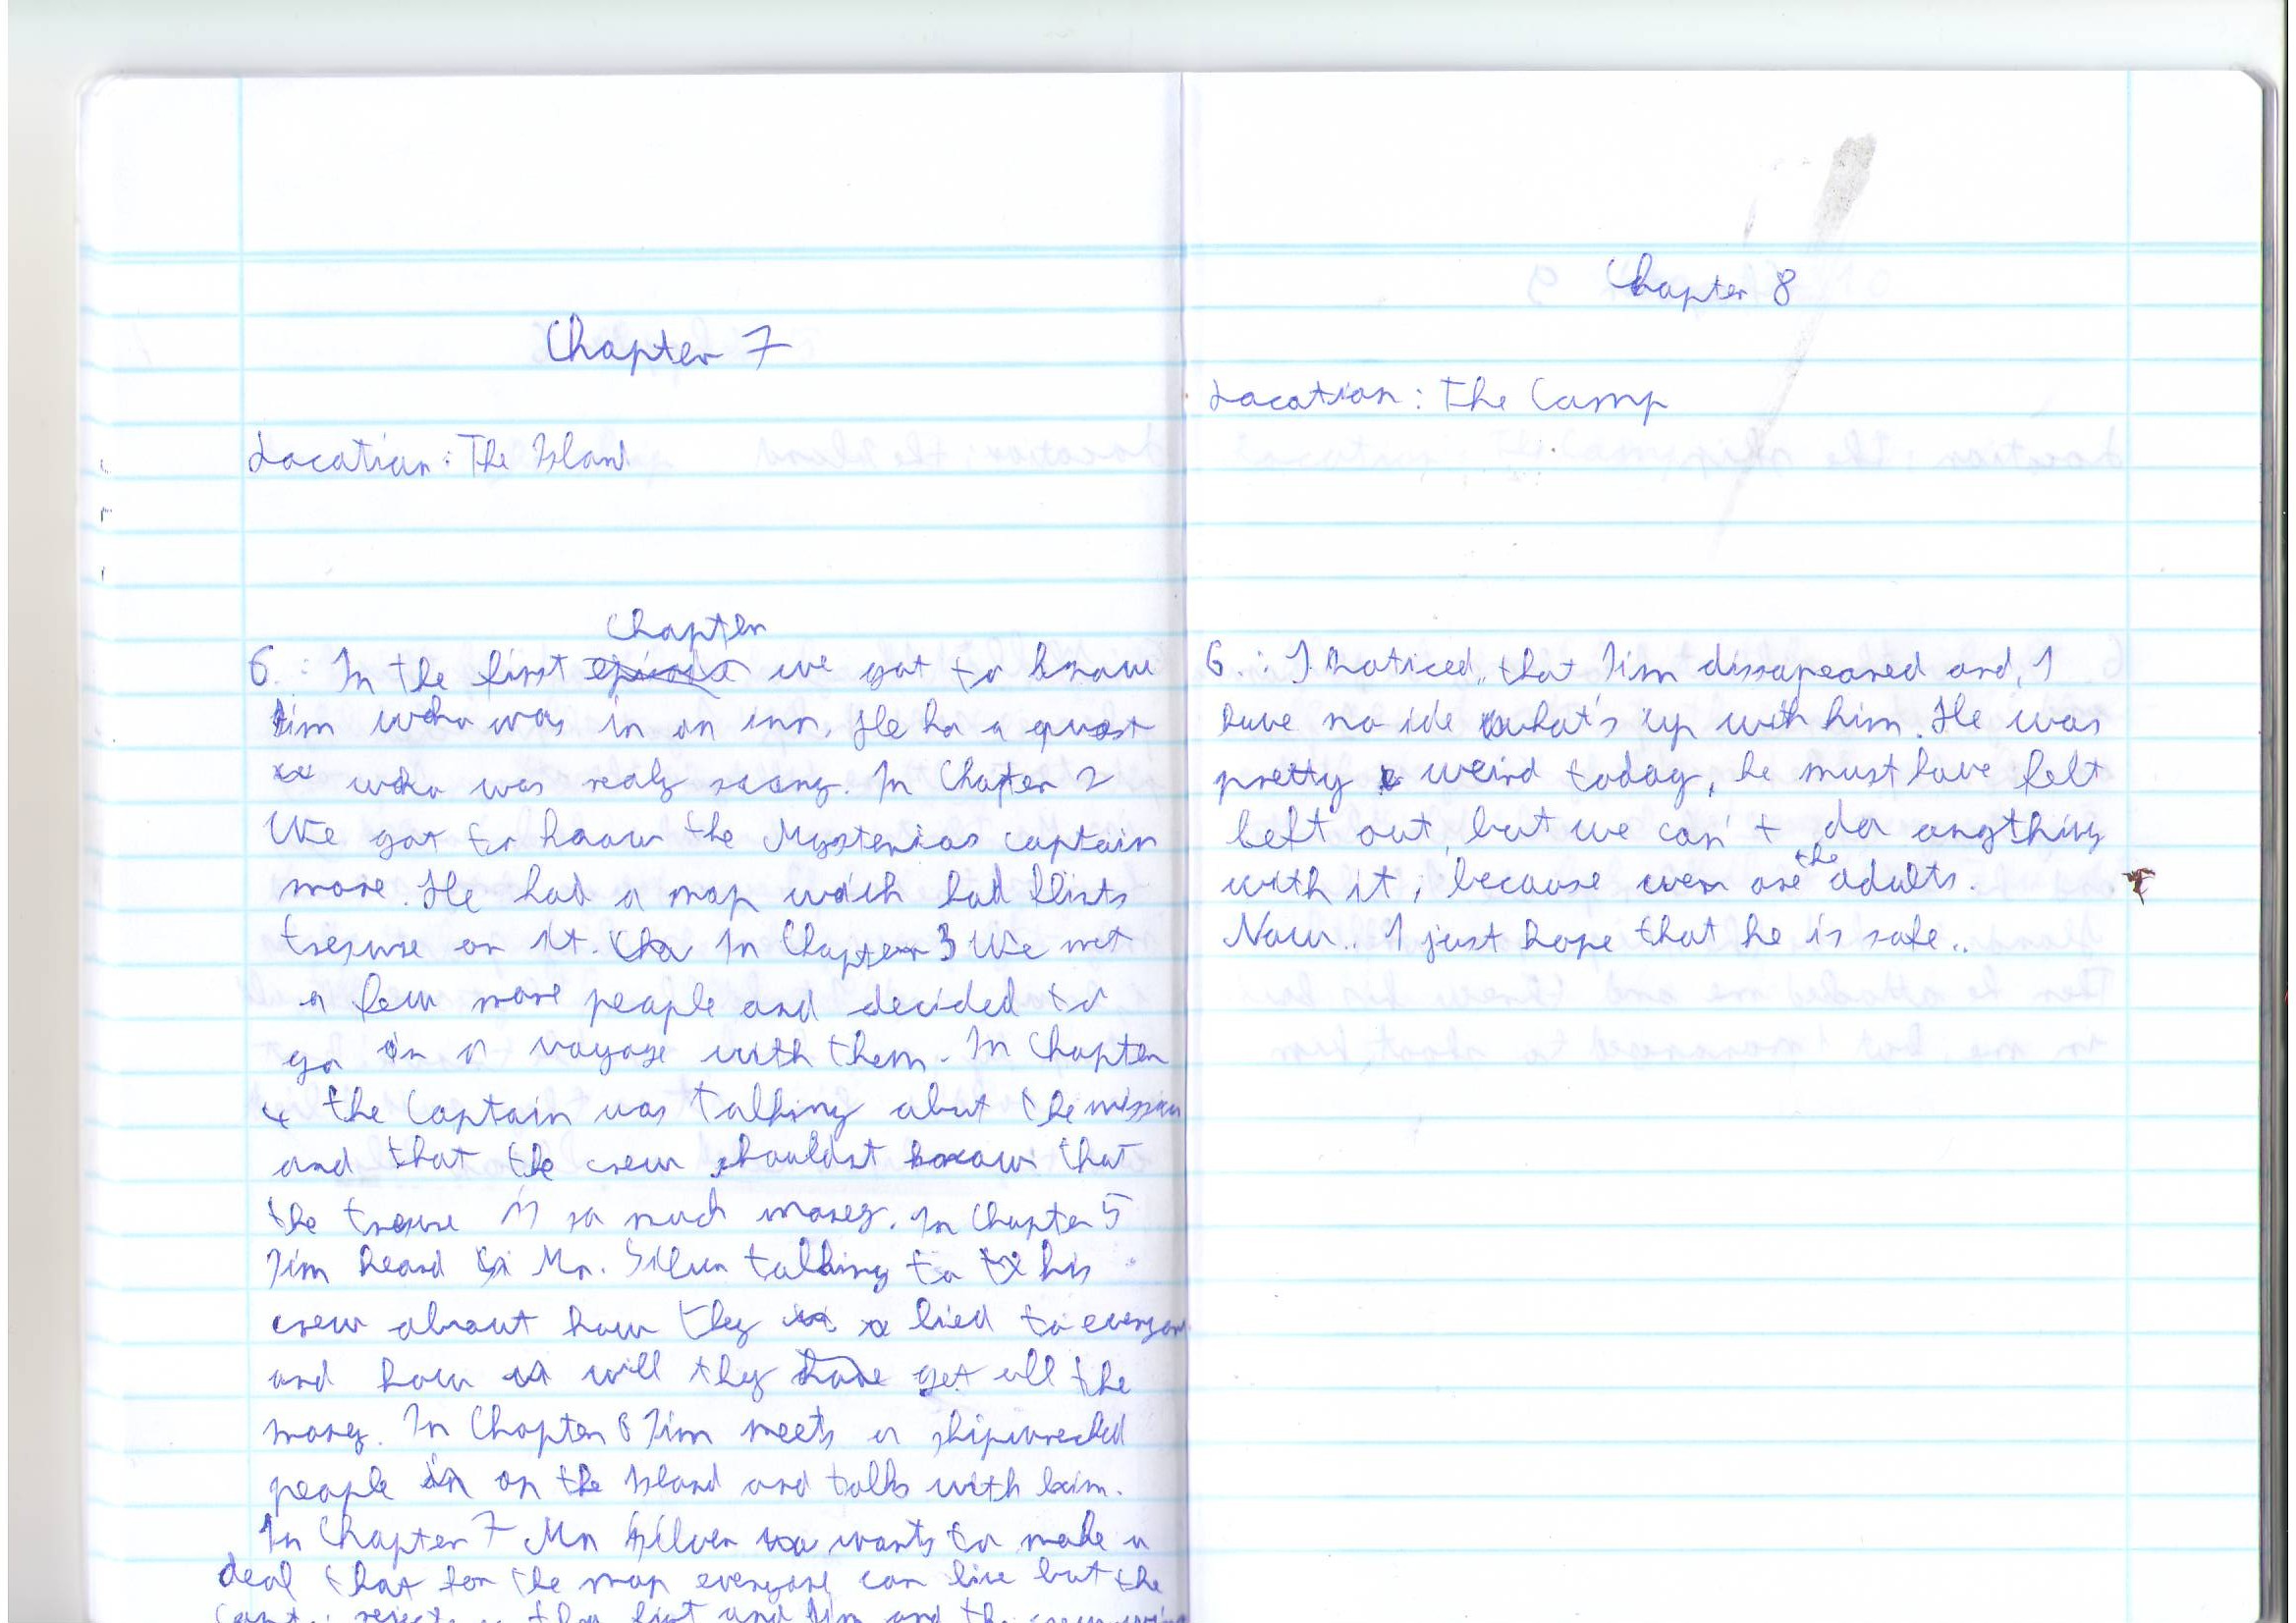 Chapter 7
Location: The Island
Chapter
6.: In the first we got to know
Jim who was in an inn. He ha a quest
who was realy scary. In Chapter 2
We got to know the Mysterias captain
more. He had a map wich had flints
tresure on it. In Chapter 3 We met
a few more people and decided to
go on a voyage with them. In Chapter
4 the Captain was talking abut the mission
and that the crew shouldnt know that
the tresure is so much money. In Chapter 5
Jim heard Mr. Silver talking to his
crew about how they lied to everyone
and how will they get all the
money. In Chapter 6 Jim meets a shipwrecked
people on the Island and talks with him.
In Chapter 7 Mr Silver wants to make a
deal that for the map everyone can live but the
rejects they and Jim and the crew
Chapter 8
Location: The Camp
6.: I noticed, that Jim dissapeared and, I
have no ide what's up with him. He was
pretty weird today, he must have felt
left out, but we can't do anything
with it, because we are the adults.
Now.. I just hope that he is safe..